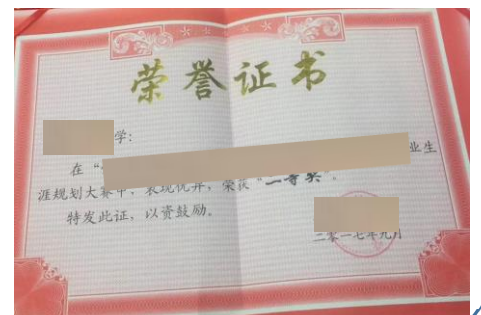 荣誉证书
学:
在“ 业生
涯规划大赛中，表现优异，荣获“二等奖”。
特发此证，以资鼓励。
二零一七年九月